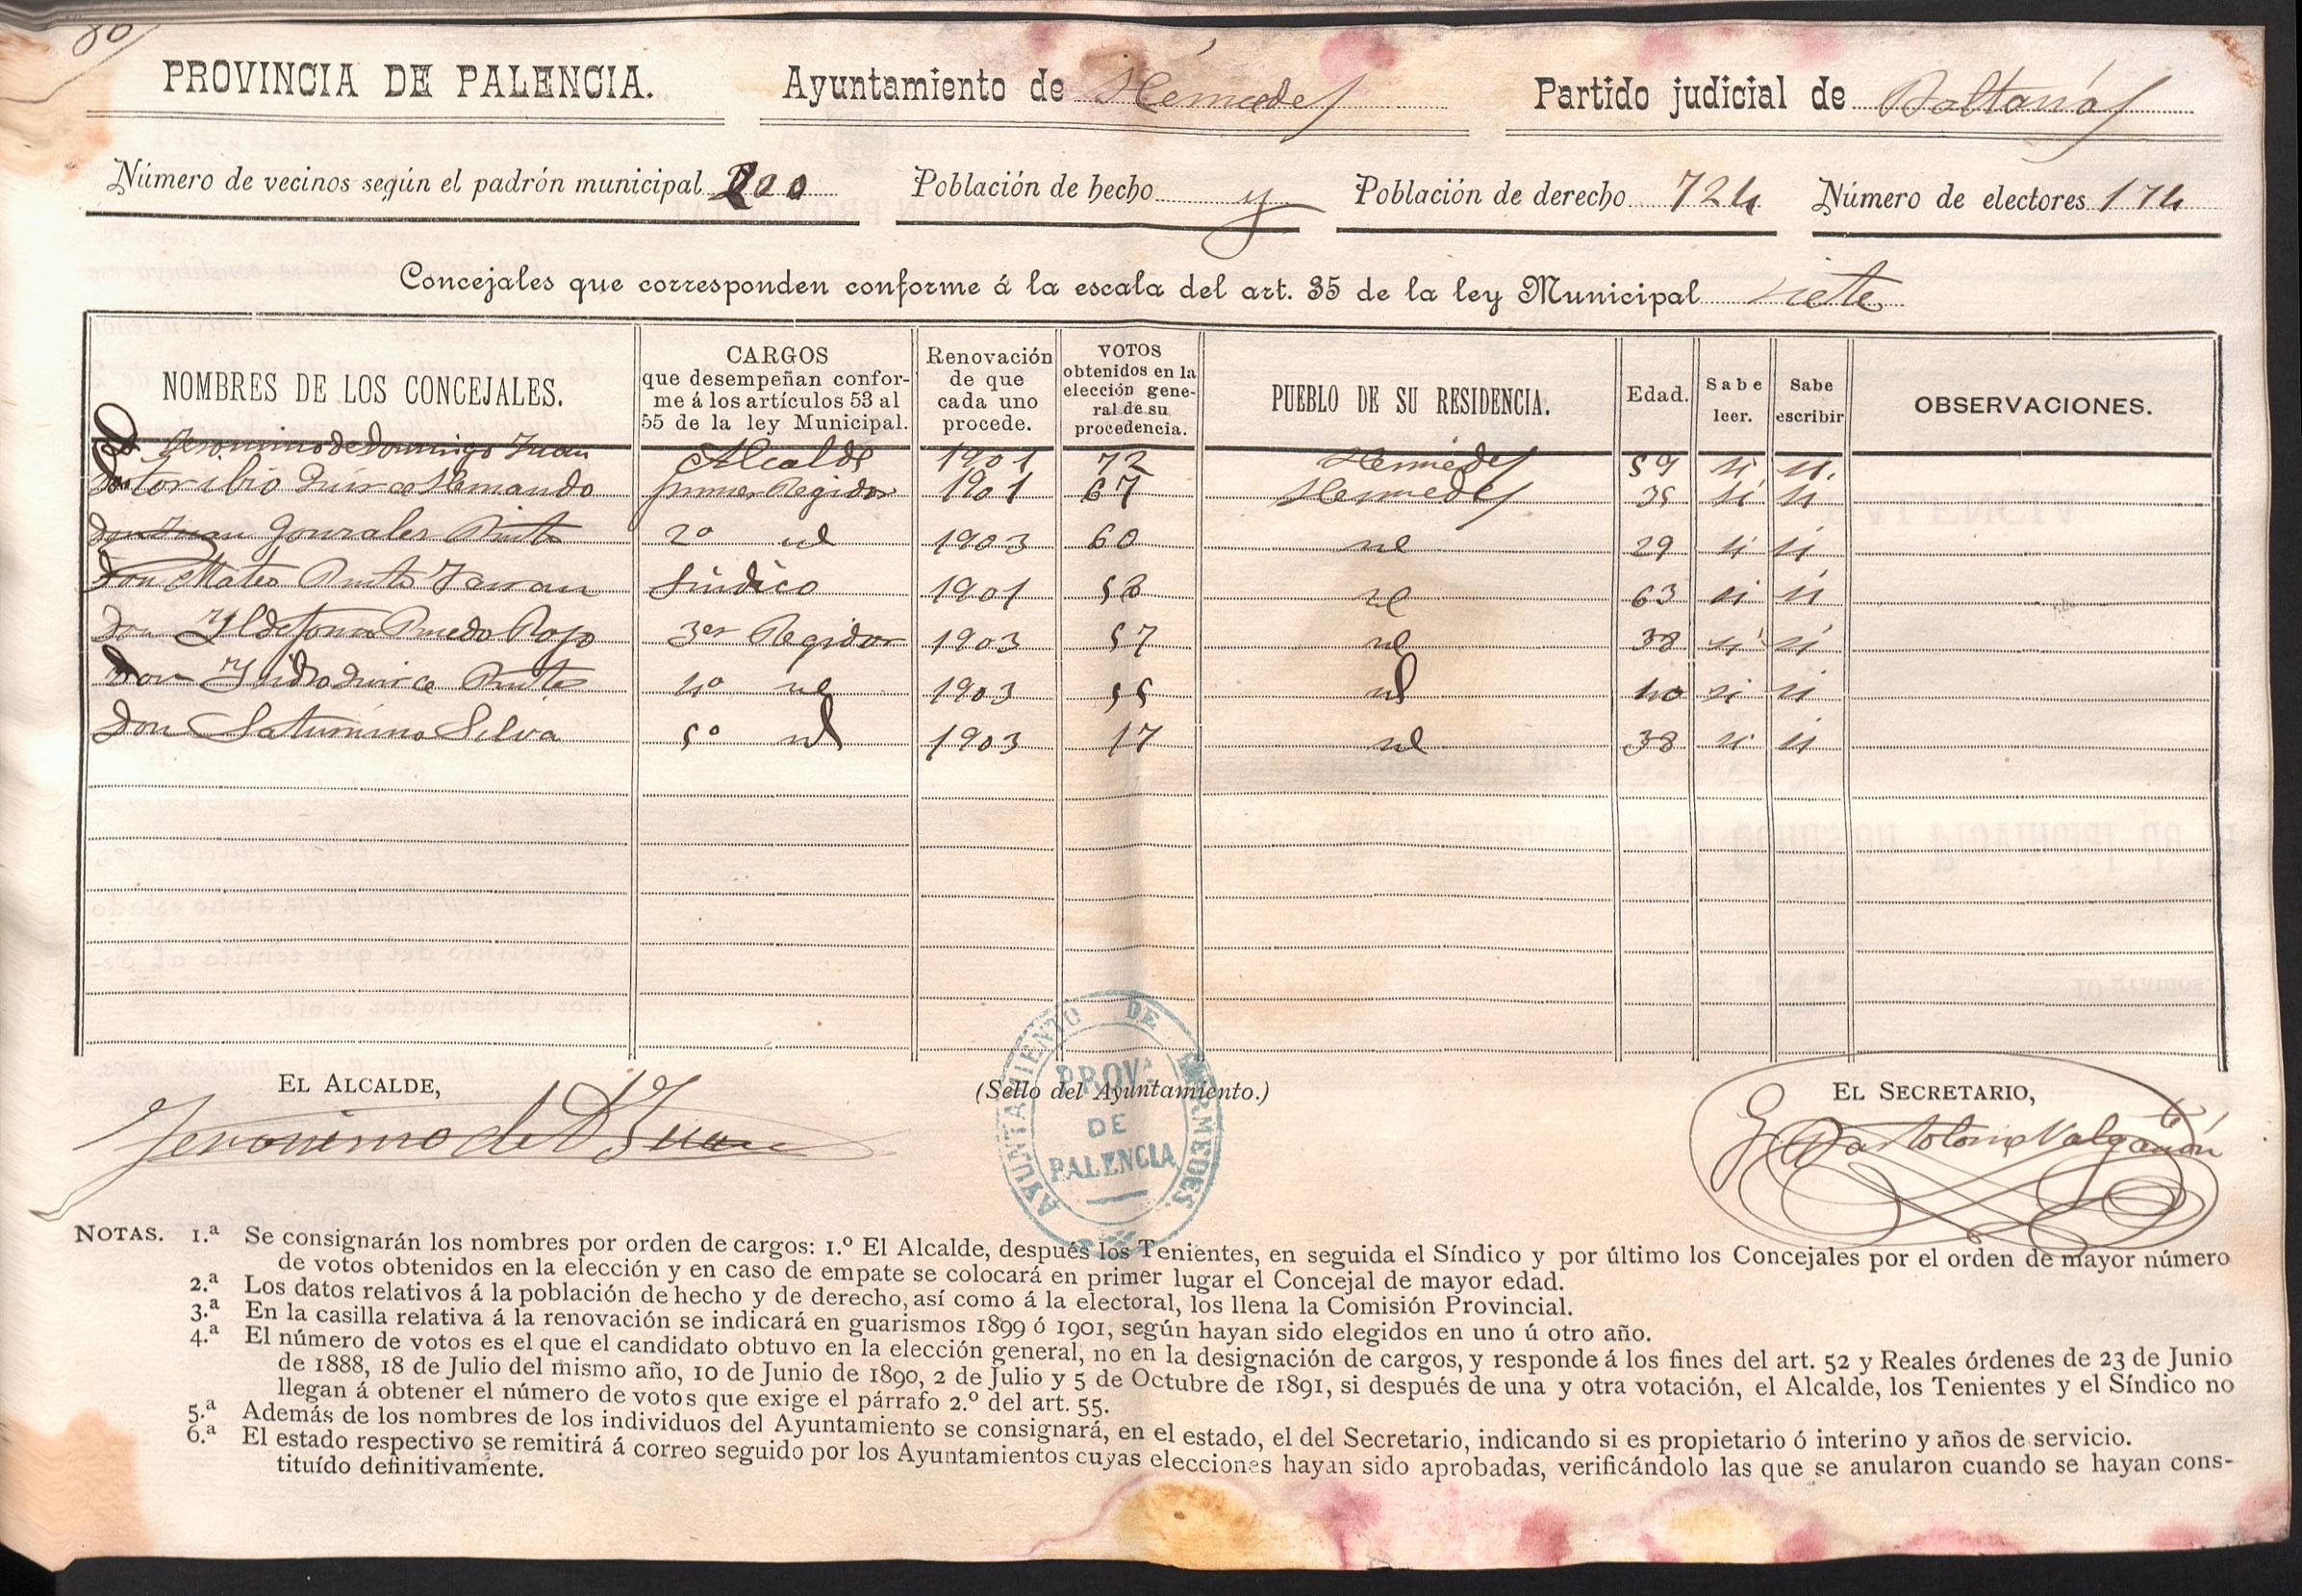 80
PROVINCIA DE PALENCIA. Ayuntamiento de Hérmedes Partido judicial de Baltanás
Número de vecinos según el padrón municipal 200 Población de hecho y Población de derecho 724 Número de electores 174
Concejales que corresponden conforme á la escala del art. 35 de la ley Municipal siete
NOMBRES DE LOS CONCEJALES.
CARGOS
que desempeñan confor-
me á los artículos 53 al
55 de la ley Municipal.
Renovación
de que
cada uno
procede.
VOTOS
obtenidos en la
elección gene-
ral de su
procedencia.
PUEBLO DE SU RESIDENCIA.
Edad.
Sabe
leer.
Sabe
escribir
OBSERVACIONES.
D. Jeronimo de Domingo Juan Alcalde 1901 72 Hermedes 59 si si.
Don Toribio Quirce Hernando primer Regidor 1901 67 Hermedes 35 si si
Don Juan Gonzales Pinto 2º id 1903 60 id 29 si si
Don Mateo Pinto Síndico 1901 58 id 63 si si
Don Yldefonso Pinedo Rojo 3er Regidor 1903 57 id 38 si si
Don Ysidro Quirce Pinto 4º id 1903 55 id 40 si si
Don Saturnino Silva 5º id 1903 17 id 38 si si
EL ALCALDE,
Jeronimo de D Juan
(Sello del Ayuntamiento.)
AYUNTAMIENTO DE HERMEDES
PROVª
DE
PALENCIA
EL SECRETARIO,
G. Bartolomé Valgañón
NOTAS. 1.ª Se consignarán los nombres por orden de cargos: 1.º El Alcalde, después los Tenientes, en seguida el Síndico y por último los Concejales por el orden de mayor número
de votos obtenidos en la elección y en caso de empate se colocará en primer lugar el Concejal de mayor edad.
2.ª Los datos relativos á la población de hecho y de derecho, así como á la electoral, los llena la Comisión Provincial.
3.ª En la casilla relativa á la renovación se indicará en guarismos 1899 ó 1901, según hayan sido elegidos en uno ú otro año.
4.ª El número de votos es el que el candidato obtuvo en la elección general, no en la designación de cargos, y responde á los fines del art. 52 y Reales órdenes de 23 de Junio
de 1888, 18 de Julio del mismo año, 10 de Junio de 1890, 2 de Julio y 5 de Octubre de 1891, si después de una y otra votación, el Alcalde, los Tenientes y el Síndico no
llegan á obtener el número de votos que exige el párrafo 2.º del art. 55.
5.ª Además de los nombres de los individuos del Ayuntamiento se consignará, en el estado, el del Secretario, indicando si es propietario ó interino y años de servicio.
6.ª El estado respectivo se remitirá á correo seguido por los Ayuntamientos cuyas elecciones hayan sido aprobadas, verificándolo las que se anularon cuando se hayan cons-
tituído definitivamente.